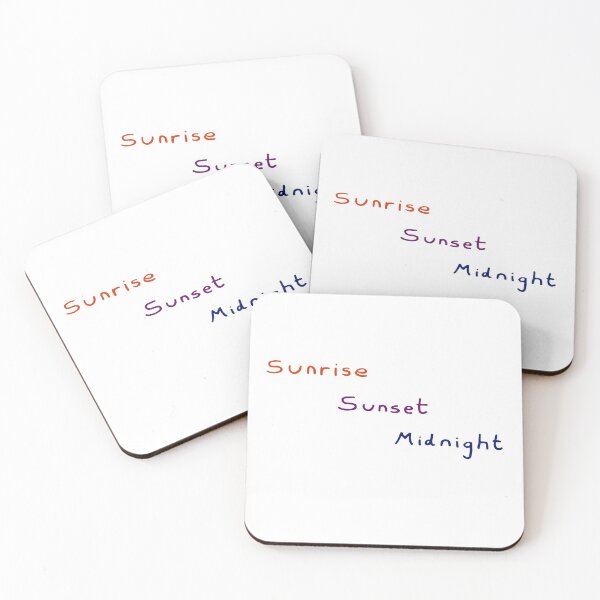 Sunrise
Sunset
Sunrise
Sunset
Midnight
Sunrise
Sunset
Midnight
Sunrise
Sunset
Midnight